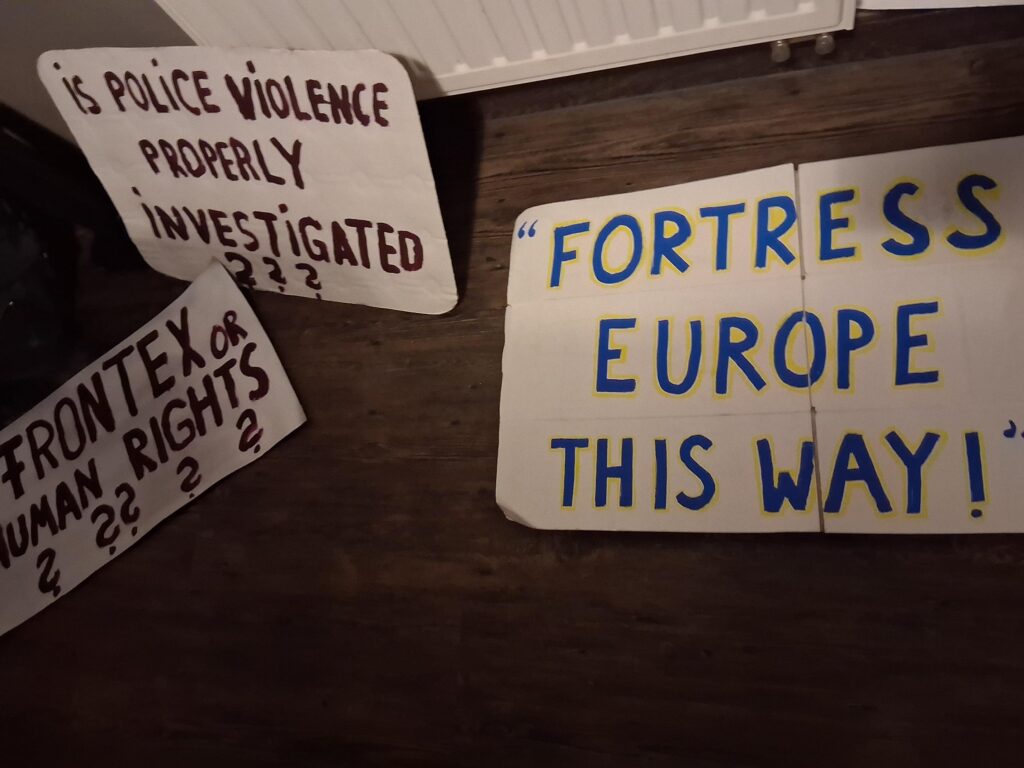 is POLICE ViOLENCE
PROPERLY
iNVESTiGATED
???
FRONTEX OR
HUMAN RIGHTS
?????
“FORTRESS
EUROPE
THIS WAY!”